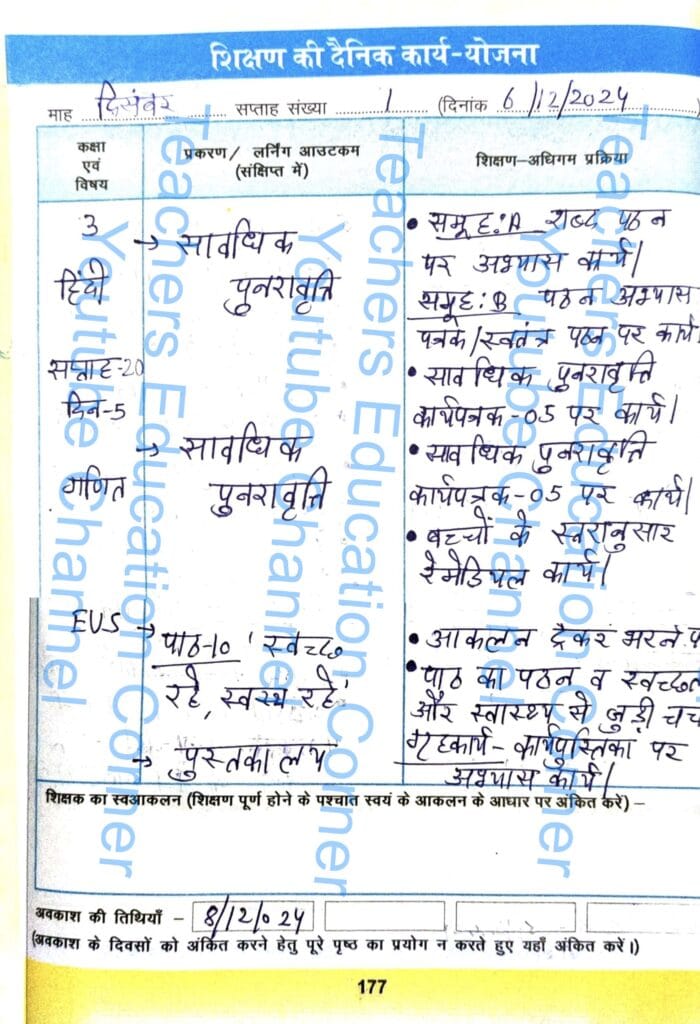 शिक्षण की दैनिक कार्य-योजना
माह दिसंबर सप्ताह संख्या 1 (दिनांक 6/12/2024
कक्षा एवं विषय
प्रकरण/ लर्निंग आउटकम (संक्षिप्त में)
शिक्षण-अधिगम प्रक्रिया
3
हिंदी
सप्ताह-20
दिन-5
→ सावधिक
पुनरावृत्ति
• समूह:A शब्द पठन
पर अभ्यास कार्य।
समूह:B पठन अभ्यास
पत्रक/स्वतंत्र पठन पर कार्य।
• सावधिक पुनरावृत्ति
कार्यपत्रक-05 पर कार्य।
गणित
→ सावधिक
पुनरावृत्ति
• सावधिक पुनरावृत्ति
कार्यपत्रक-05 पर कार्य।
• बच्चों के स्तरानुसार
रेमेडियल कार्य।
EVS
→ पाठ-10 'स्वच्छ
रहे, स्वस्थ रहे'
→ पुस्तकालय
• आकलन ट्रैकर भरने
• पाठ का पठन व
और स्वास्थ्य से जुड़ी
गृहकार्य- कार्यपुस्तिका पर
अभ्यास कार्य।
शिक्षक का स्वआकलन (शिक्षण पूर्ण होने के पश्चात स्वयं के आकलन के आधार पर अंकित करें) –
अवकाश की तिथियाँ – 8/12/024
(अवकाश के दिवसों को अंकित करने हेतु पूरे पृष्ठ का प्रयोग न करते हुए यहाँ अंकित करें।)
177
Teachers Education Corner
Youtube Channel
Teachers Education Corner
Youtube Channel
Teachers Education Corner
Youtube Channel